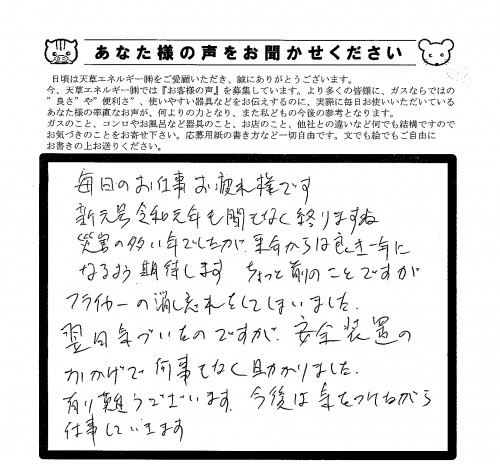 あなた様の声をお聞かせください
日頃は天草エネルギー㈱をご愛顧いただき、誠にありがとうございます。
今、天草エネルギー㈱では『お客様の声』を募集しています。より多くの皆様に、ガスならではの
"良さ"や"便利さ"、使いやすい器具などをお伝えするのに、実際に毎日お使いいただいている
あなた様の率直なお声が、何よりの力となり、また私どもの今後の参考となります。
ガスのこと、コンロやお風呂など器具のこと、お店のこと、他社との違いなど何でも結構ですので
お気づきのことをお寄せ下さい。応募用紙の書き方など一切自由です。文でも絵でもご自由に
お書きの上お送りください。
毎日のお仕事お疲れ様です
新元号令和元年も間もなく終りますね
災害の多い年でしたが、来年からは良き一年に
なるよう期待します ちょっと前のことですが
フライヤーの消し忘れをしてしまいました。
翌日気づいたのですが、安全装置の
おかげで何事もなく助かりました。
有り難うございます。今後は気をつけながら
仕事していきます